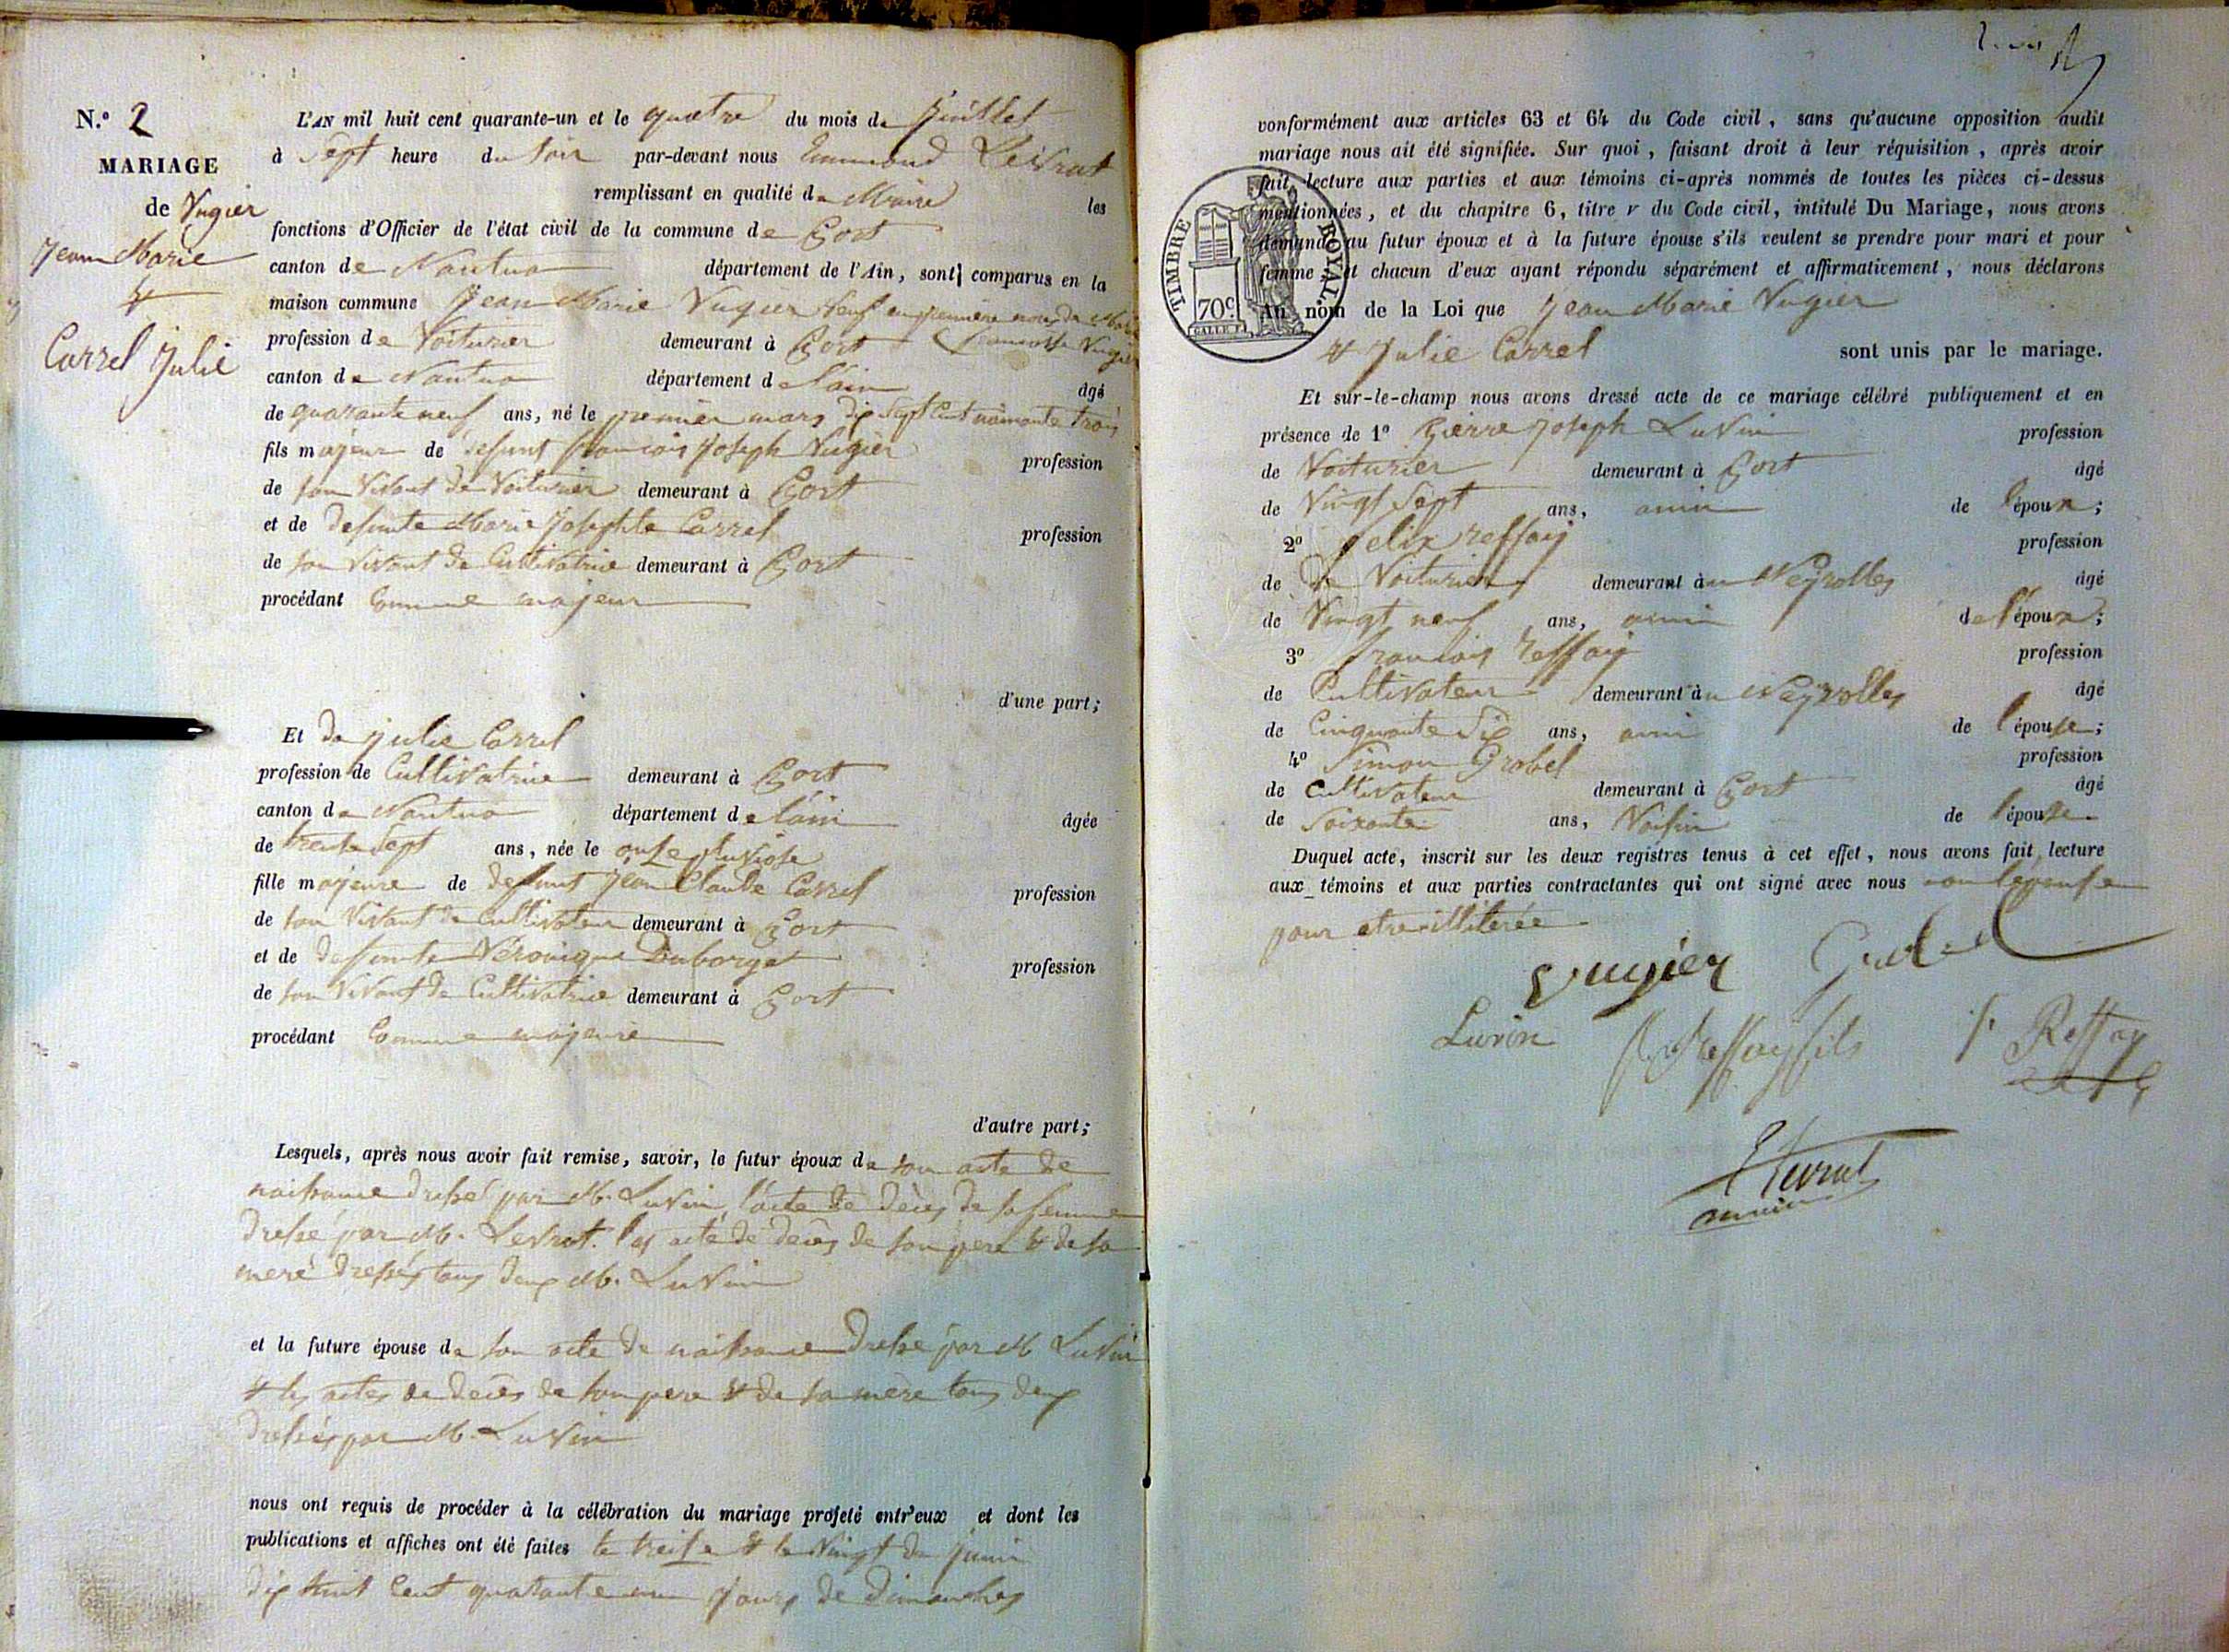 N.º 2
MARIAGE
de Vugier
Jean Marie
&
Carrel Julie
L'AN mil huit cent quarante-un et le quatre du mois de juillet
à Sept heure du Soir par-devant nous Emmanuel Levrat
remplissant en qualité de Maire les
fonctions d'Officier de l'état civil de la commune de Port
canton de Nantua département de l'Ain, sont comparus en la
maison commune Jean Marie Vugier Veuf en première noces de Marie
profession de Voiturier demeurant à Port Francoise Vugier
canton de Nantua département de l'ain âgé
de quarante neuf ans, né le premier mars dix Sept Cent nonante trois
fils majeur de defunt francois Joseph Vugier profession
de son Vivant de Voiturier demeurant à Port
et de defunte Marie Josephte Carrel profession
de son Vivant de Cultivatrice demeurant à Port
procédant Comme majeur
d'une part;
Et de Julie Carrel
profession de Cultivatrice demeurant à Port
canton de Nantua département de l'ain âgée
de trente Sept ans, née le onse pluviose
fille majeure de defunt Jean Claude Carrel profession
de son Vivant de Cultivateur demeurant à Port
et de defunte Véronique Duborget profession
de son Vivant de Cultivatrice demeurant à Port
procédant Comme majeure
d'autre part;
Lesquels, après nous avoir fait remise, savoir, le futur époux de son acte de
naissance dressé par M. Luvin, l'acte de décès de sa femme
dressé par M. Levrat. les acte de decès de son pere & de sa
mere dressés tous deux M. Luvin
et la future épouse de son acte de naissance dressé par M Luvin
& les actes de decès de son pere & de sa mère tous deux
dressés par M. Luvin
nous ont requis de procéder à la célébration du mariage projeté entr'eux et dont les
publications et affiches ont été faites le treise & le Vingt de juin
dix huit Cent quarante un jours de dimanches
conformément aux articles 63 et 64 du Code civil, sans qu'aucune opposition audit
mariage nous ait été signifiée. Sur quoi, faisant droit à leur réquisition, après avoir
fait lecture aux parties et aux témoins ci-après nommés de toutes les pièces ci-dessus
mentionnées, et du chapitre 6, titre v du Code civil, intitulé Du Mariage, nous avons
demandé au futur époux et à la future épouse s'ils veulent se prendre pour mari et pour
femme et chacun d'eux ayant répondu séparément et affirmativement, nous déclarons
TIMBRE ROYAL
70 c
Au nom de la Loi que Jean Marie Vugier
& Julie Carrel sont unis par le mariage.
Et sur-le-champ nous avons dressé acte de ce mariage célébré publiquement et en
présence de 1º Pierre Joseph Luvin profession
de Voiturier demeurant à Port âgé
de Vingt Sept ans, ami de l'époux;
2º felix reffay profession
de de Voiturier demeurant à Neyrolles âgé
de Vingt neuf ans, ami de l'époux;
3º francois reffay profession
de Cultivateur demeurant à Neyrolles âgé
de Cinquante Six ans, ami de l'épouse;
4º Simon Grobel profession
de Cultivateur demeurant à Port âgé
de Soixante ans, Voisin de l'épouse
Duquel acte, inscrit sur les deux registres tenus à cet effet, nous avons fait lecture
aux témoins et aux parties contractantes qui ont signé avec nous non l'épouse
pour etre illiterée
Vugier
Luvin Reffay fils f. Reffay
Levrat
maire